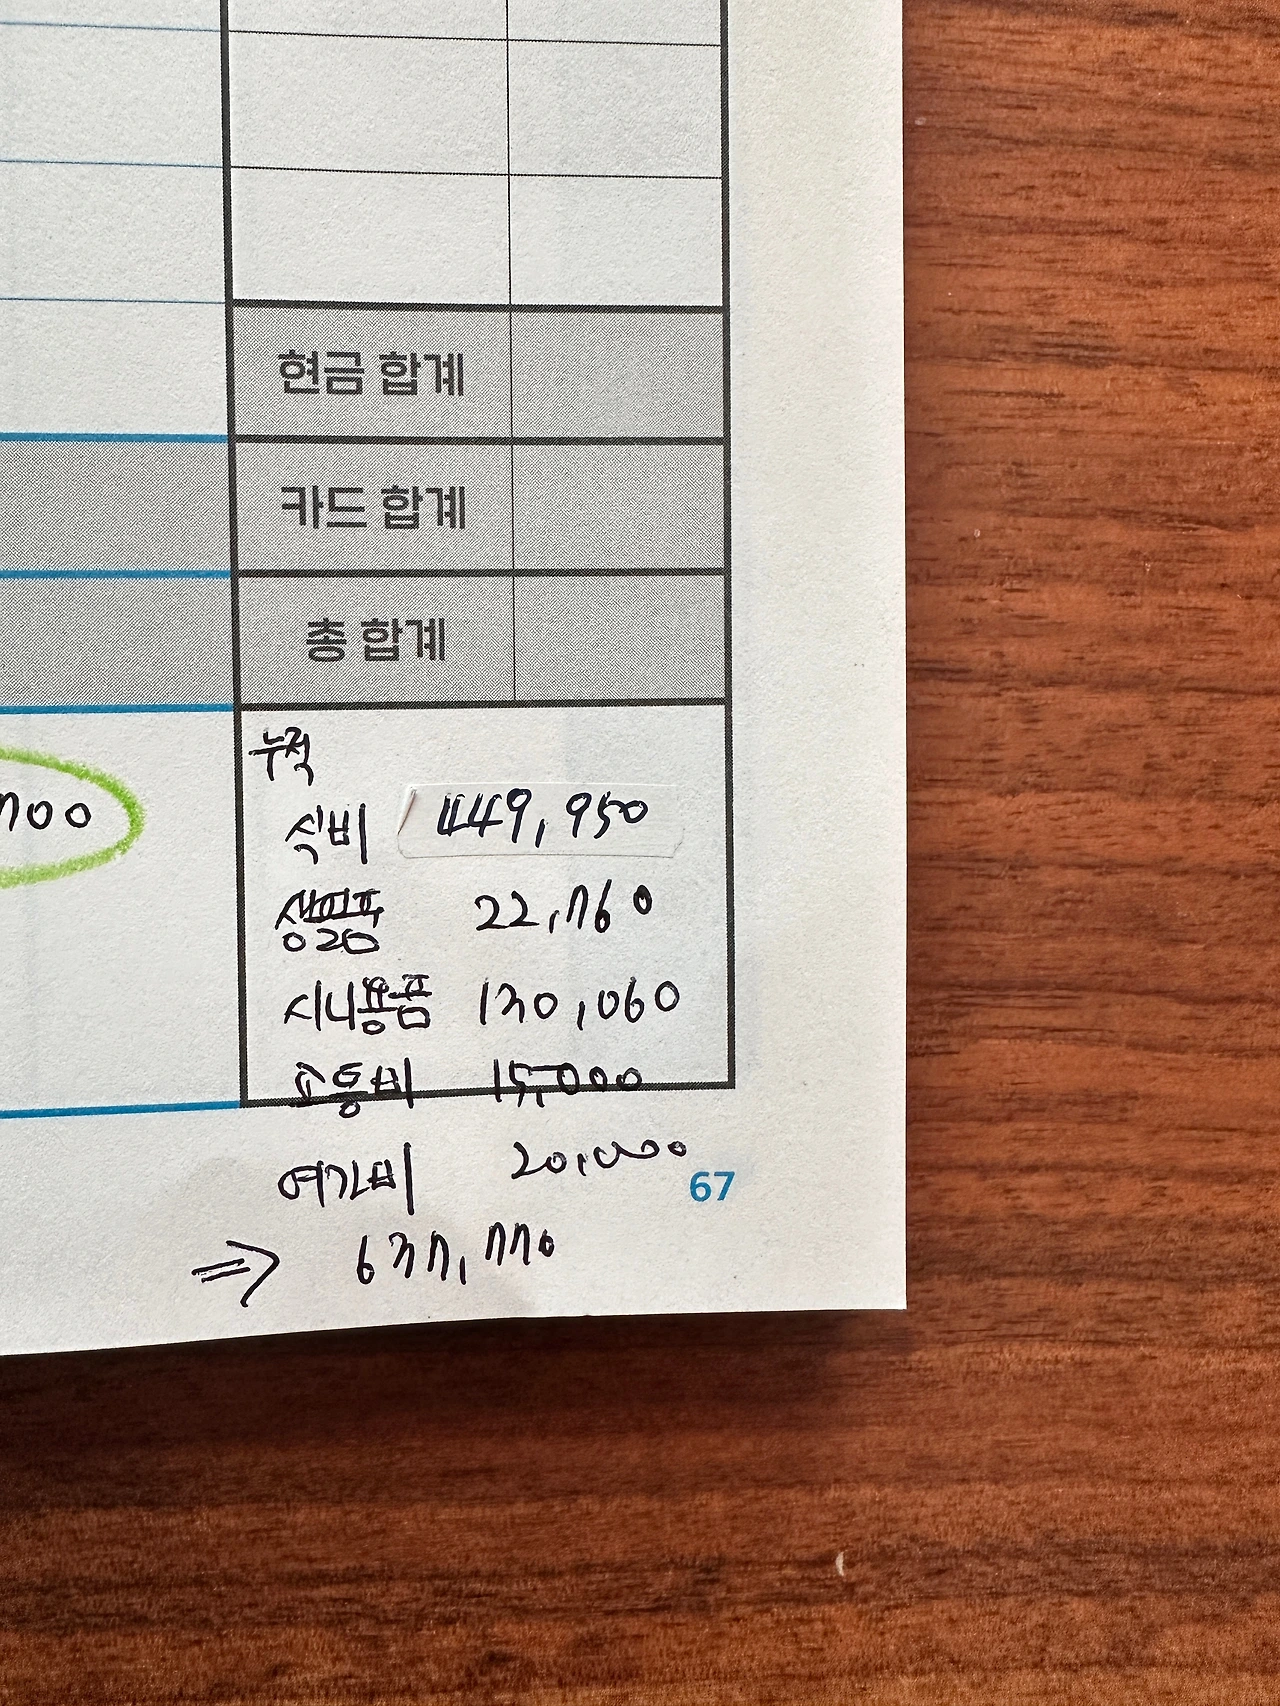 현금 합계
카드 합계
총 합계
누적
700
식비 449,950
생필품 22,760
시니용품 130,060
교통비 15,000
여가비 20,000
67
⇒ 637,770